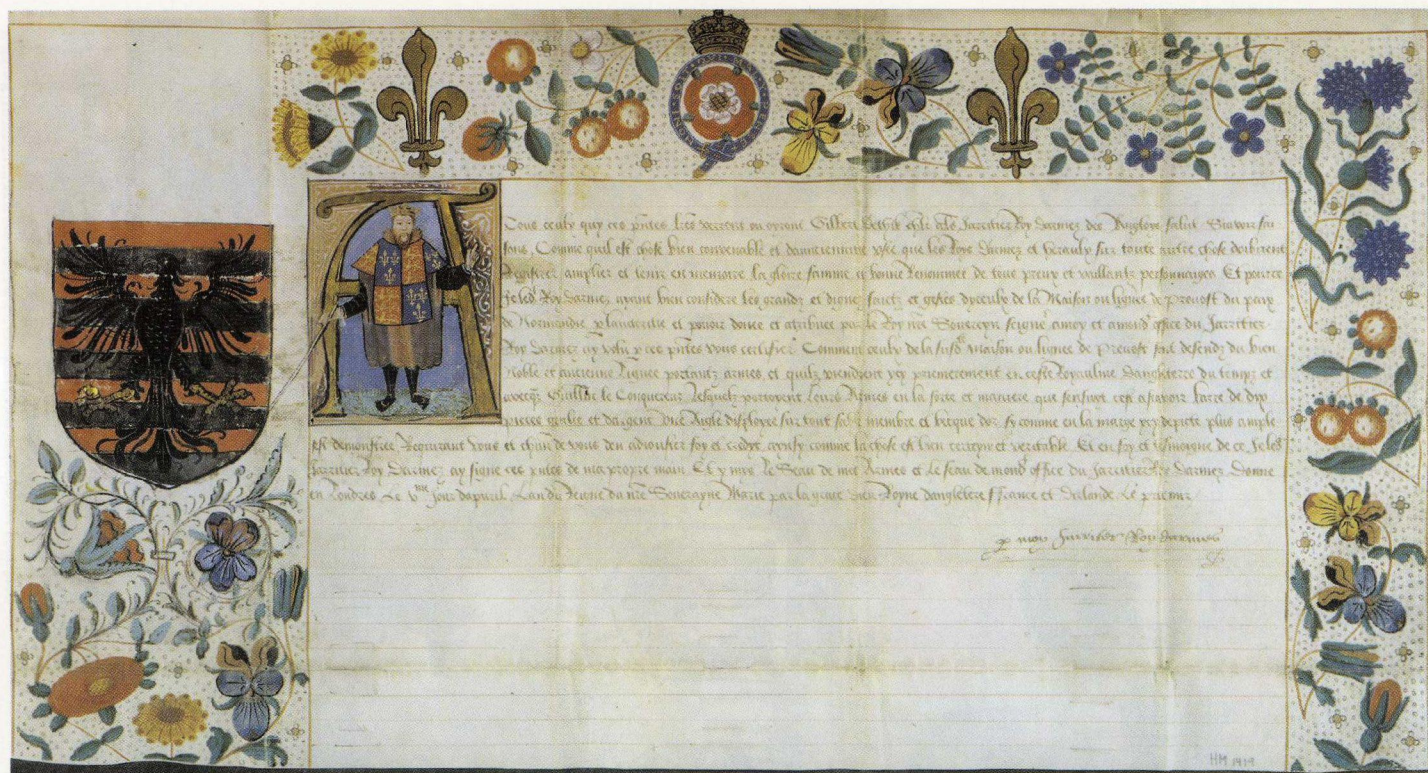 A
Tous ceulx quy ces pntes lres verront ou oyront Gilbert Dethick Jarretier Roy Darmes des Angloys salut Scavoir fai
sons, Comme quil est chose bien convenable et que les Roys Darmes et Heraulx sur toute autre chose doibvent
Registrer amplier et tenir en memoire la gloire famme et bonne Renommee de tous preux et vaillants personnaiges Et pource
Je led Roy darmes ayant bien considere les grandz et dignes faictz et gestes diceulx de la Maison ou ligne de Prevost du pays
de Normandie et povoir donne et atribue par le Roy nre Souverayn seigne a moy et a mond office du Jarretier
Roy Darmes ay volu p ces pntes vous certifier Comment ceulx de la susd Maison ou lignee de Prevost sont descendz du bien
Noble et ancienne Lignee portantz armes, et quilz viendrent premierement en cestes Royaulme Dangleterre du temps et
avecq Guille le Conquereur Lesquelz porterent Leurs Armes en la sorte et maniere que sensuyt cest a scavoir barre de dix
pieces gueules et dargent Une Aigle displayee sur tout sable membre et becque dor sy comme en la marge depicte plus ample
est demonstree Requirant vous et chun de vous den adiouster foy et comme la chose et bien certeyn et veritable Et en foy et tesmoigne de ce Je led
Jarretier Roy Darmes ay signe ces pntes de ma propre main Et y mys le Seau de mes Armes et le seau de mond office du Jarretier Roy Darmes Donne
en Londres Le jour dapvril Lan du Reigne da nre Souverayne Marie par la grace dieu Royne dangletere ffrance et dirlande Le premier
p moy Jarretier Roy darmes
HM 1919